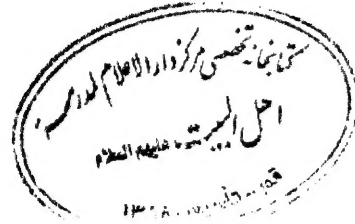 کتابخانه تخصصی مرکز دارالاعلام لمدرسة
اهل البیت علیهم السلام